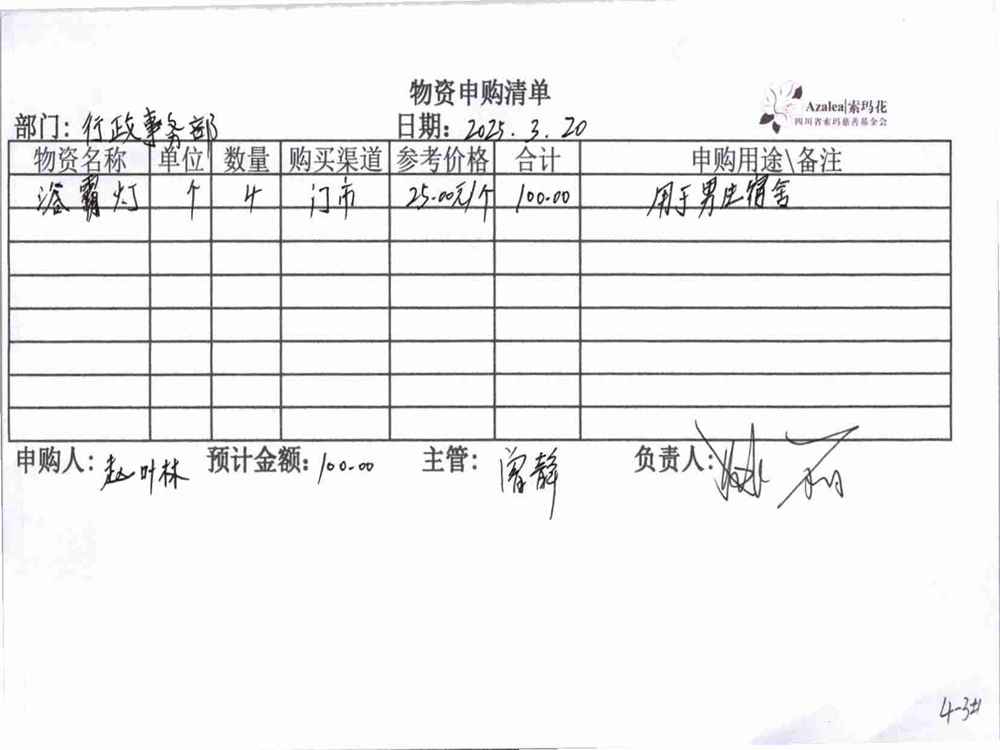 物资申购清单
Azalea|索玛花
四川省索玛慈善基金会
部门：行政事务部 日期：2025.3.20
物资名称 单位 数量 购买渠道 参考价格 合计 申购用途\备注
浴霸灯 个 4 门市 25.00元/个 100.00 用于男生宿舍
申购人：赵叶林 预计金额：100.00 主管：曾静 负责人：